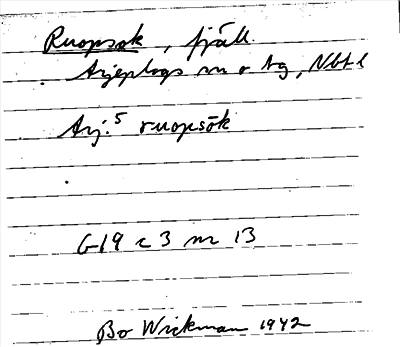 Ruopsok, fjäll.
Arjeplogs sn o tg, Nbt l
Arj.5 ruopsōk
G19 c 3 nr 13
Bo Wickman 1942